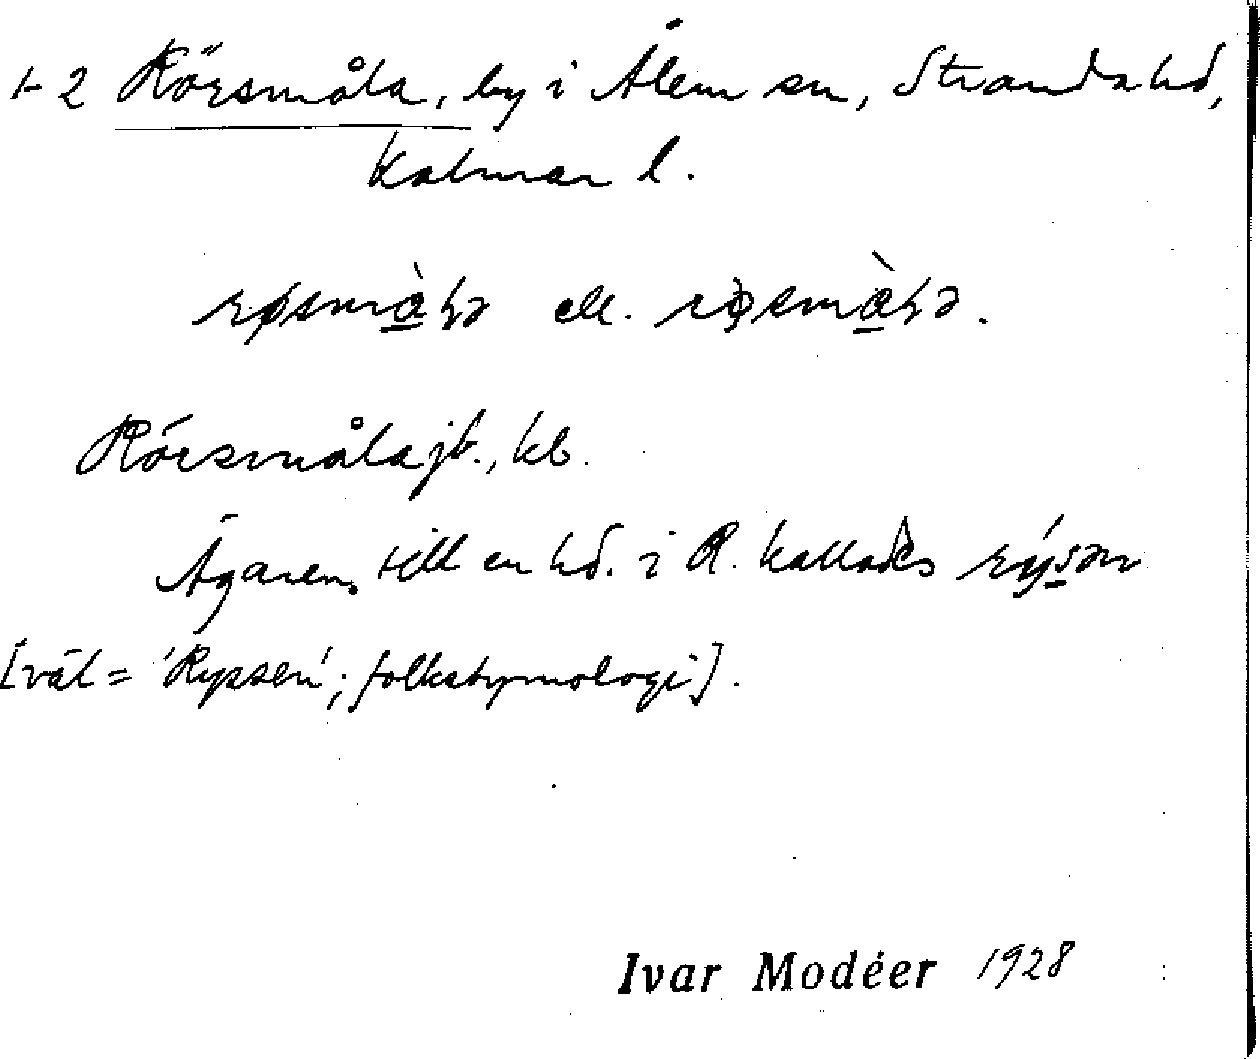 1-2 Rörsmåla, by i Ålem sn, Stranda hd,
Kalmar l.
røsmàla ell. røsmàla.
Rörsmåla jb., kb.
Ägaren till en hd. i R. kallades rýsən
[väl = 'Ryssen'; folketymologi].
Ivar Modéer 1928